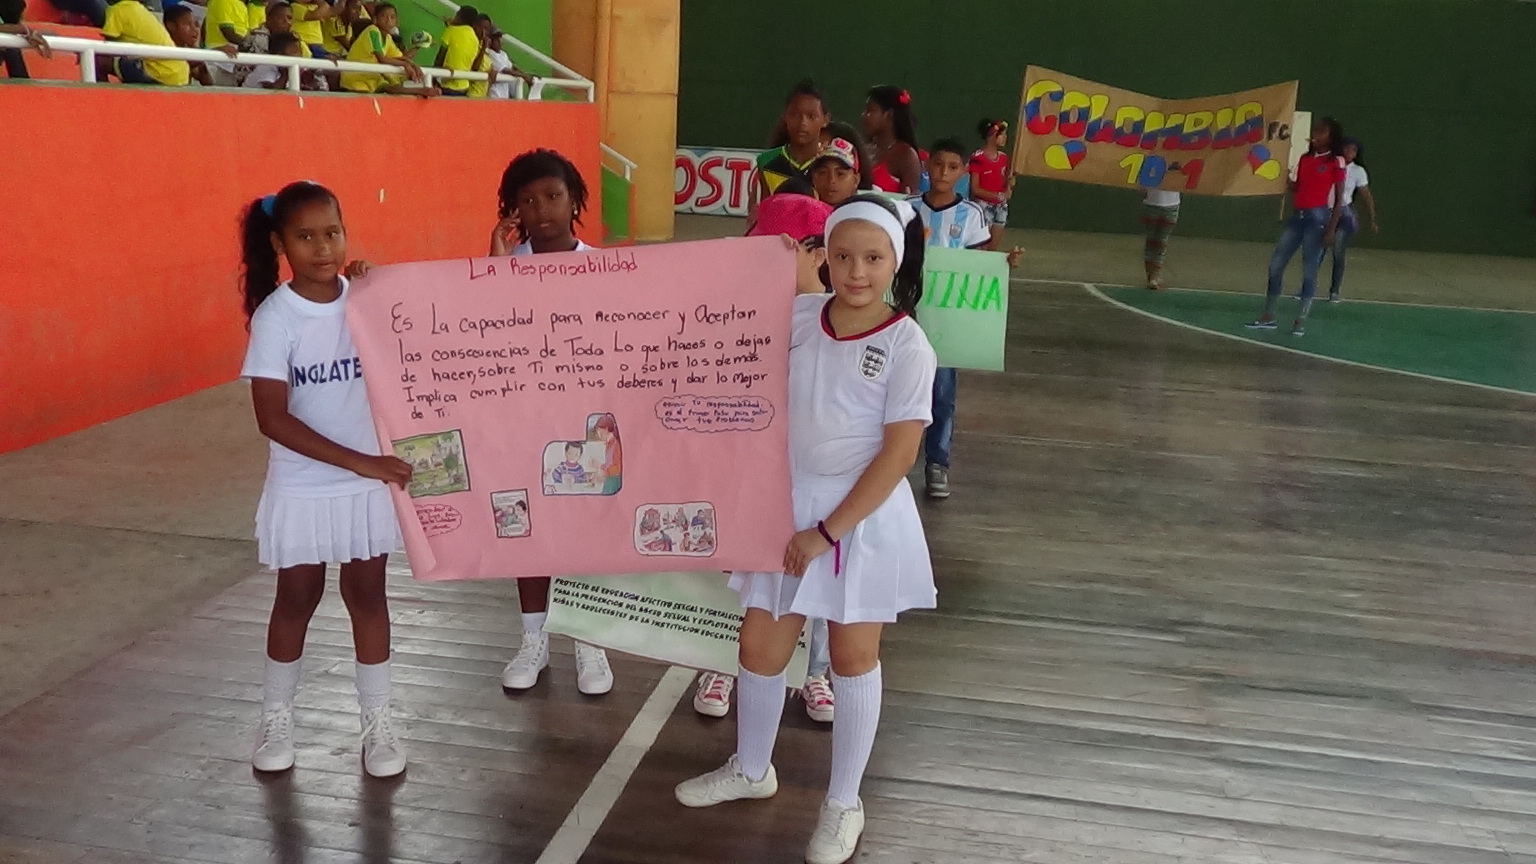 LA Responsabilidad
Es La capacidad para Reconocer y Aceptar
las consecuencias de Todo Lo que haces o dejas
de hacer, sobre Ti mismo o sobre los demás.
Implica cumplir con tus deberes y dar lo mejor
de Ti.
Tu responsabilidad
es el Primer Paso para
tus Problemas
INGLATE
TINA
COLOMBIA F.C.
10-1
OST
PROYECTO DE EDUCACION AFECTIVO SEXUAL Y FORTALECI
PARA LA PREVENCION DEL ABUSO SEXUAL Y EXPLOTACIO
NIÑAS Y ADOLECENTES DE LA INSTITUCION EDUCATIVA